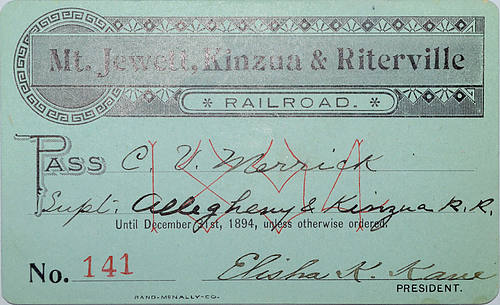 Mt. Jewett, Kinzua & Riterville
* RAILROAD. *
PASS C. V. Merrick
Supt. Allegheny & Kinzua R.R.
Until December 31st, 1894, unless otherwise ordered.
No. 141 Elisha K. Kane
PRESIDENT.
RAND-MCNALLY-CO.